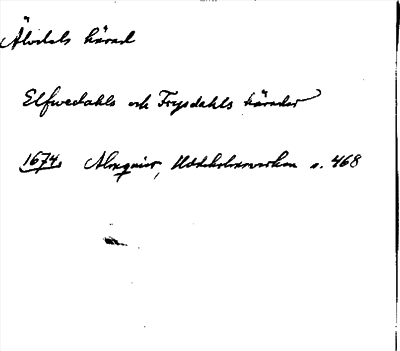 Älvdals härad
Elfwedahls och Frysdahls härader
1674. Almquist, Uddeholmsverken s. 468